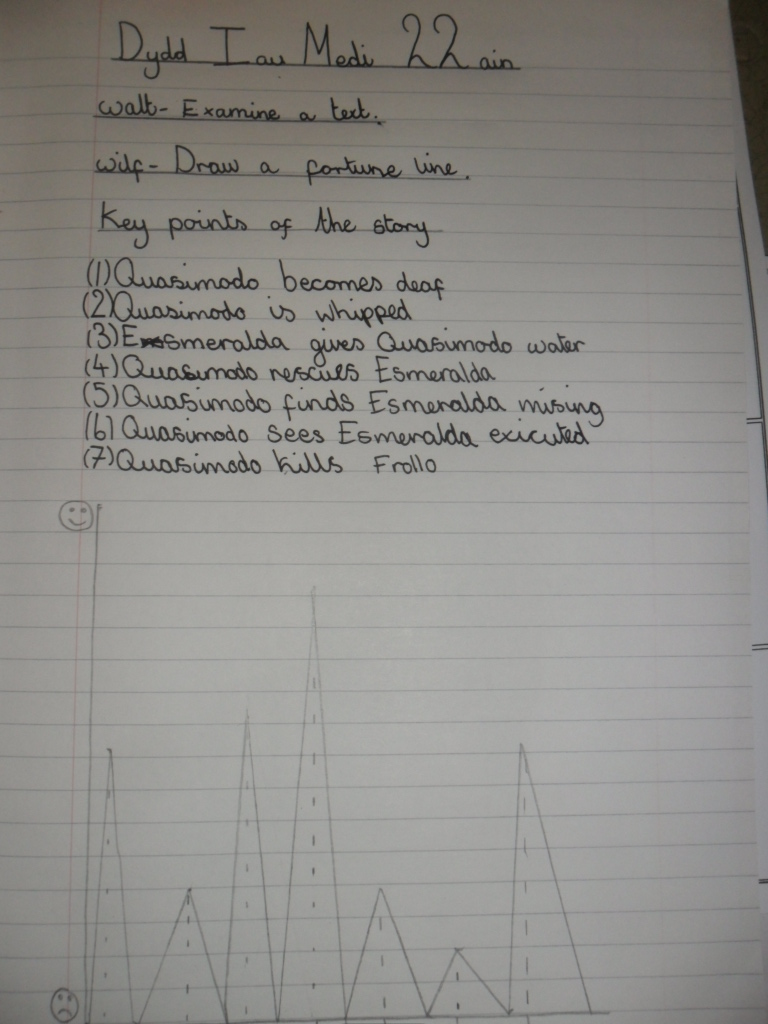 Dydd Iau Medi 22ain
walt- Examine a text.
wilf- Draw a fortune line.
Key points of the story
(1) Quasimodo becomes deaf
(2) Quasimodo is whipped
(3) Esmeralda gives Quasimodo water
(4) Quasimodo rescues Esmeralda
(5) Quasimodo finds Esmeralda mising
(6) Quasimodo sees Esmeralda exicuted
(7) Quasimodo kills Frollo